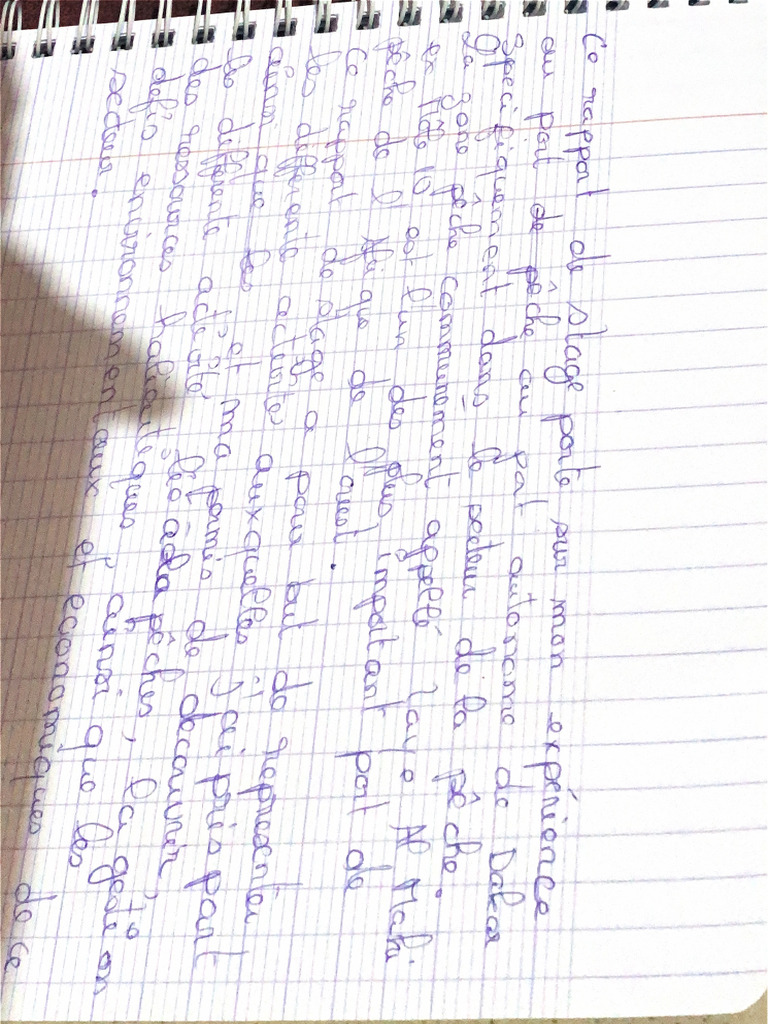 Ce rapport de stage porte sur mon expérience
au port de pêche au port autonome de Dakar
Spécifiquement dans le secteur de la pêche.
La zone pêche communément appellé Laye
ex Môle 10 est l'un des plus important port de
pêche de l'Afrique de l'ouest.
Ce rapport de stage a pour but de représenter
les différente activité auxquelles j'ai pris part
ainsi que les et ma permis de découvrir,
le différente activité liés à la pêches, la gestion
des ressources halieutiques, ainsi que les
défis environnementaux et economiques de ce
secteur.